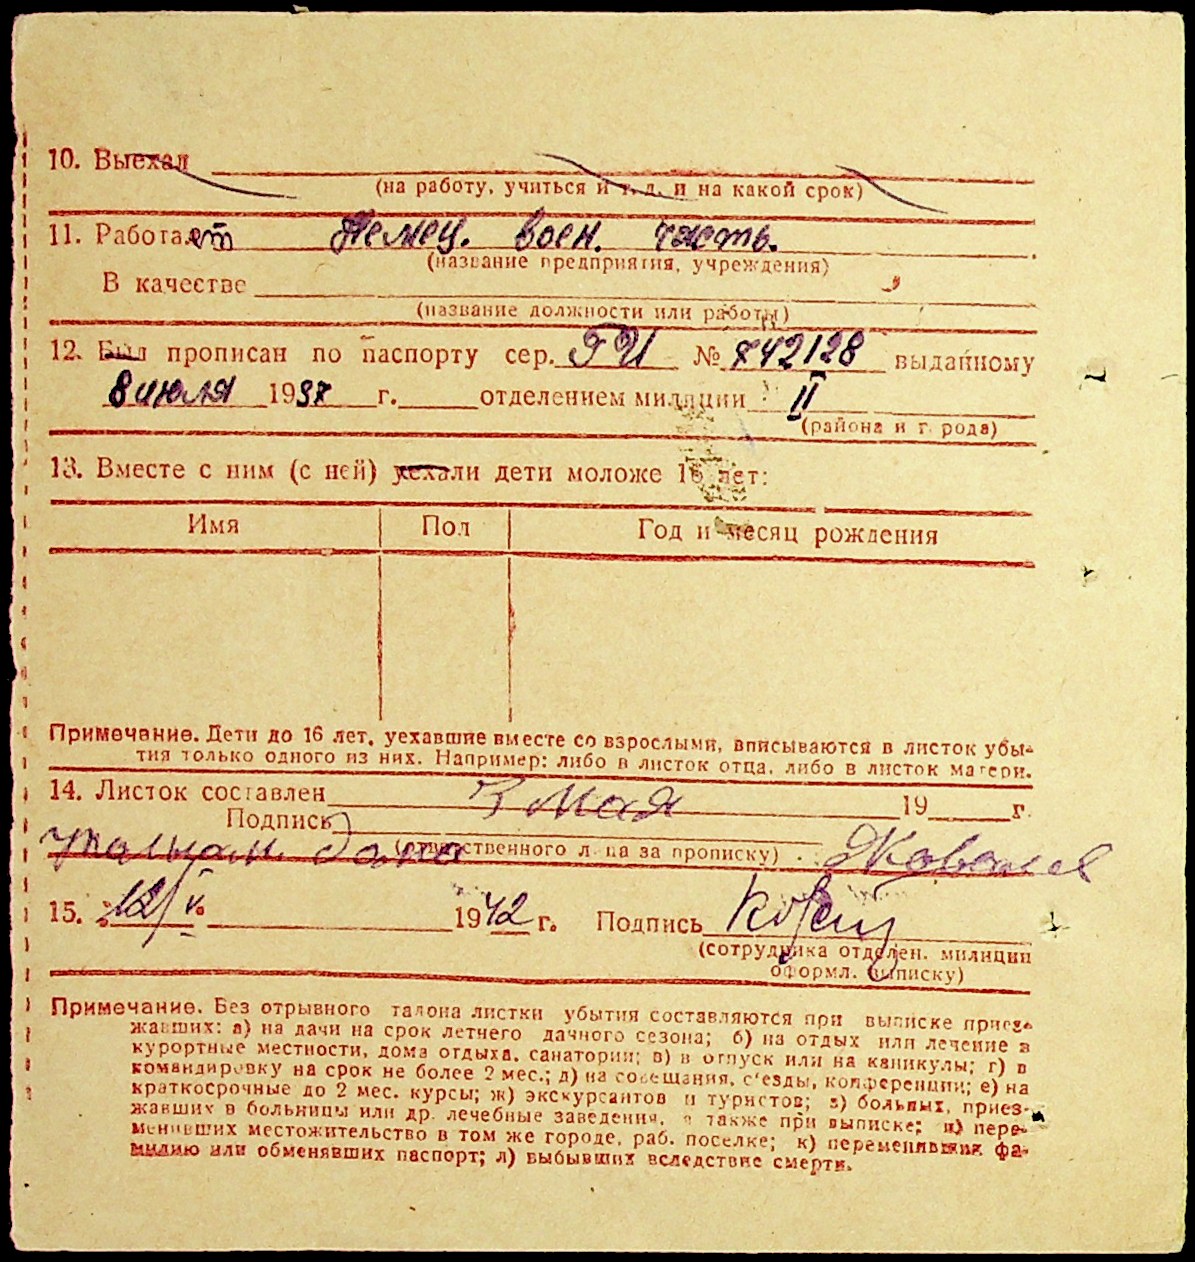 10. Выехал
(на работу, учиться и т. д. и на какой срок)
11. Работает Немец. воен. часть.
(название предприятия, учреждения)
В качестве
(название должности или работы)
12. Был прописан по паспорту сер. ГИ № 742128 выданному
8 июля 1937 г. отделением милиции II
(района и города)
13. Вместе с ним (с ней) уехали дети моложе 16 лет:
Имя Пол Год и месяц рождения
Примечание. Дети до 16 лет, уехавшие вместе со взрослыми, вписываются в листок убы-
тия только одного из них. Например: либо в листок отца, либо в листок матери.
14. Листок составлен 7 мая 19 г.
Подпись
(ответственного лица за прописку)
дома
15. 12/V 1942 г. Подпись
(сотрудника отделен. милиции
оформл. выписку)
Примечание. Без отрывного талона листки убытия составляются при выписке приез-
жавших: а) на дачи на срок летнего дачного сезона; б) на отдых или лечение в
курортные местности, дома отдыха, санатории; в) в отпуск или на каникулы; г) в
командировку на срок не более 2 мес.; д) на совещания, с'езды, конференции; е) на
краткосрочные до 2 мес. курсы; ж) экскурсантов и туристов; з) больных, приез-
жавших в больницы или др. лечебные заведения, а также при выписке; и) пере-
менивших местожительство в том же городе, раб. поселке; к) переменивших фа-
милию или обменявших паспорт; л) выбывших вследствие смерти.